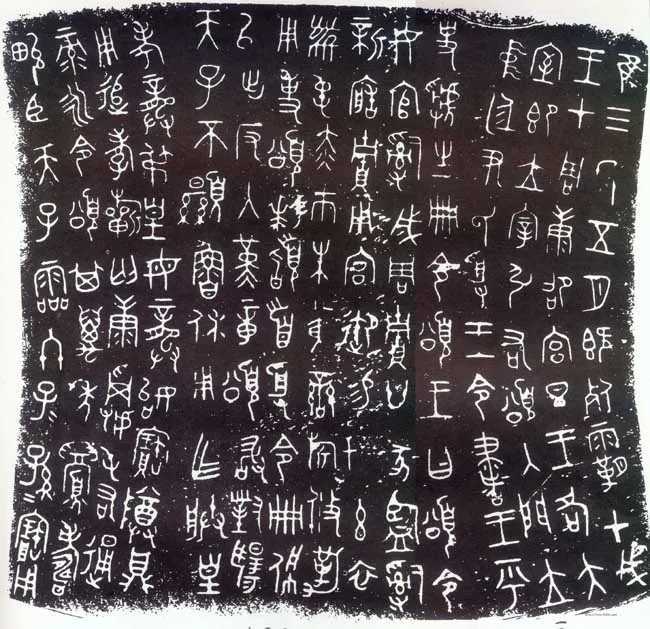 隹三年五月既死霸甲戌
王才周康卲宮旦王各大
室即立宰引右頌入門立
中廷尹氏受王令書王乎
史虢生冊令頌王曰頌令
女官𤔲成周貯廿家監𤔲
新造貯用宮御易女玄衣
黹屯赤巿朱黃鑾旂攸勒
用事頌拜稽首受令冊佩
以出反入堇章頌敢對揚
天子不顯魯休用乍朕皇
考龏弔皇母龏始寶尊鼎
用追孝祈匄康𩛥屯右通
彔永令頌其萬年眉壽
畯臣天子霝冬子孫=寶用